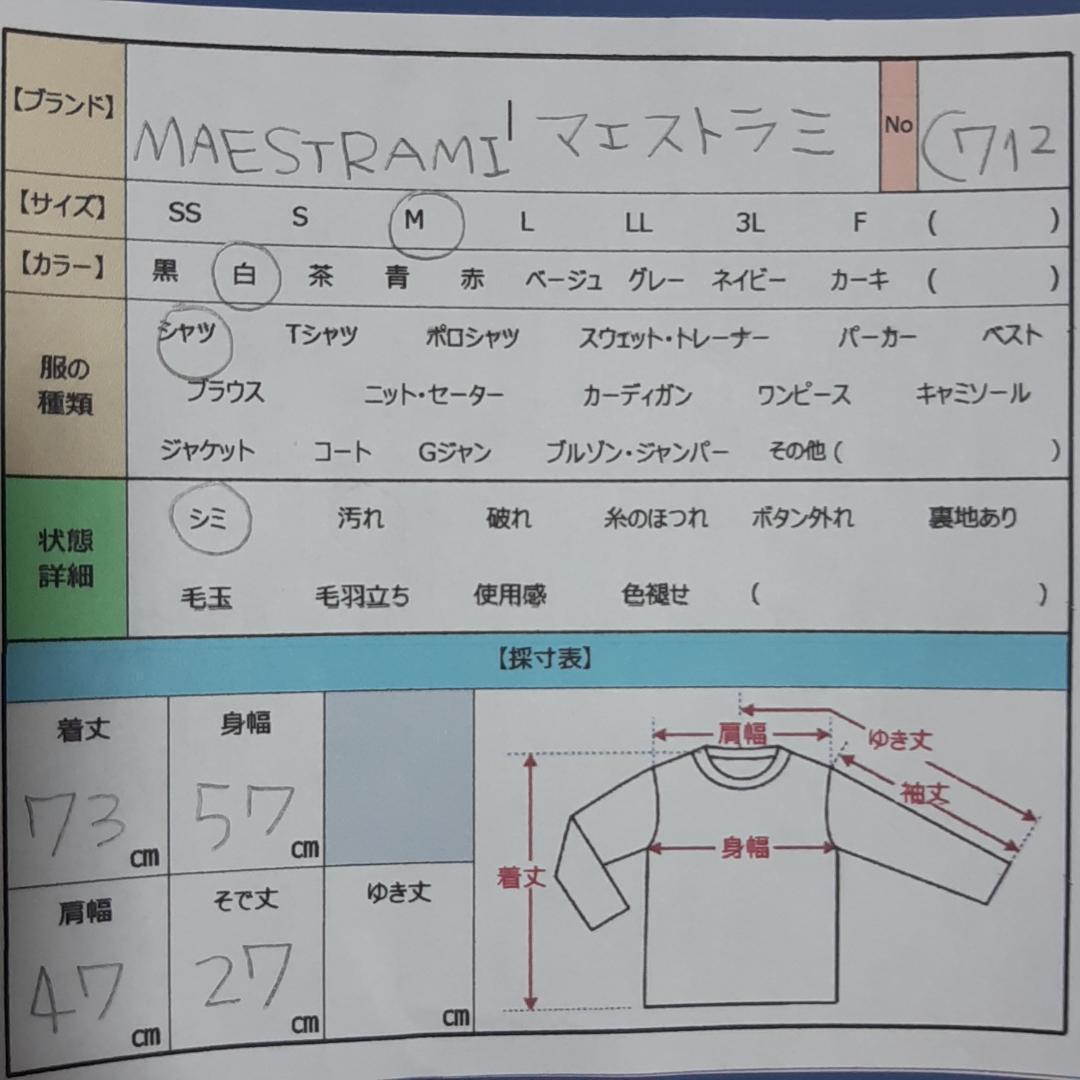 【ブランド】 MAESTRAMI' マエストラミ No (712
【サイズ】 SS S M L LL 3L F ( )
【カラー】 黒 白 茶 青 赤 ベージュ グレー ネイビー カーキ ( )
服の種類 シャツ Tシャツ ポロシャツ スウェット・トレーナー パーカー ベスト
ブラウス ニット・セーター カーディガン ワンピース キャミソール
ジャケット コート Gジャン ブルゾン・ジャンパー その他 ( )
状態詳細 シミ 汚れ 破れ 糸のほつれ ボタン外れ 裏地あり
毛玉 毛羽立ち 使用感 色褪せ ( )
【採寸表】
着丈 73 cm
身幅 57 cm
肩幅 47 cm
そで丈 27 cm
ゆき丈 cm
肩幅
ゆき丈
袖丈
身幅
着丈